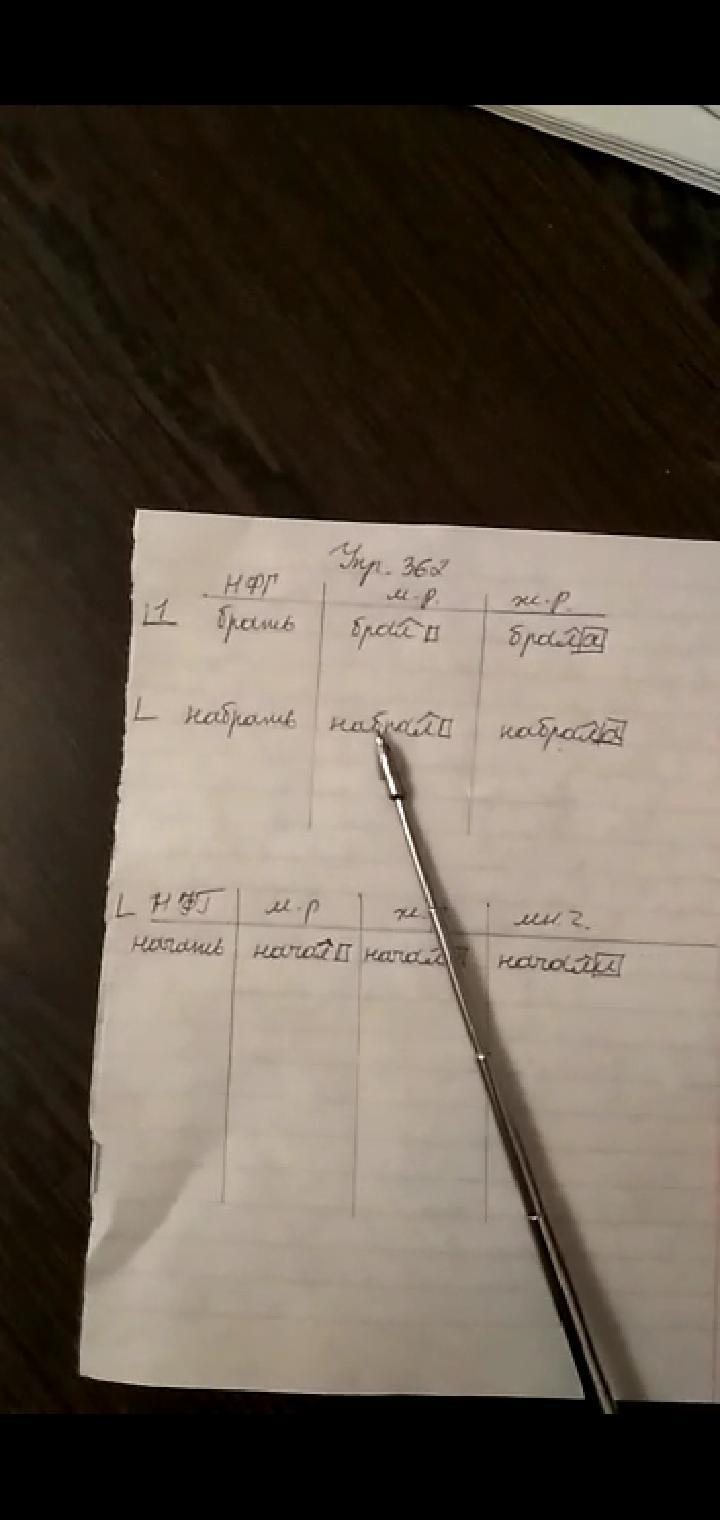 Упр. 362
НФГ м.р. ж.р.
брать брал брала
набрать набрал набрала
НФГ м.р ж. мн.ч.
начать начал начал начали